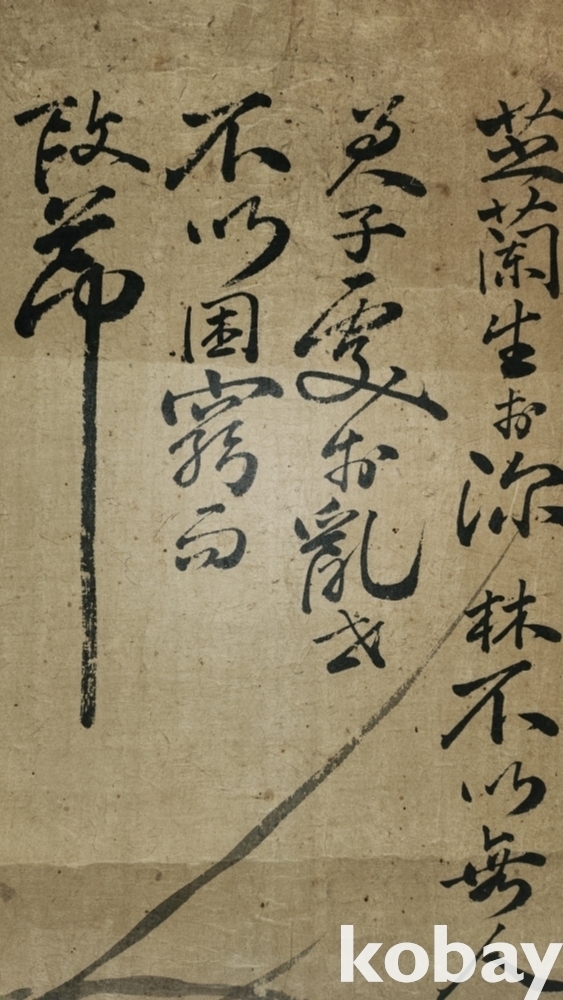 芝蘭生於深林不以無人
君子處於亂世
不以困窮而
改節
kobay